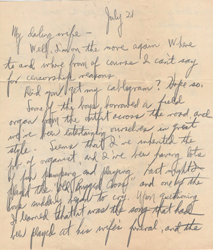 July 21
My darling wife —
Well, I'm on the move again. Where
to and where from of course I can't say
for censorship reasons.
Did you get my cablegram? Hope so.
Some of the boys borrowed a field
organ from the outfit across the road, and
we've been entertaining ourselves in great
style. Seems that I've inherited the
job of organist, and I've been having lots
of fun pumping and playing. Last night I
played the "Old Rugged Cross" and one of the
boys suddenly began to cry. Upon questioning
I learned that that was the song that had
been played at his wife's funeral, and the